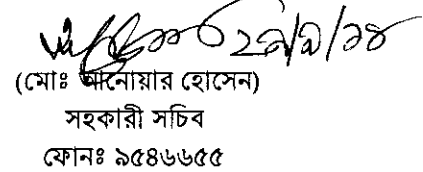 (মোঃ আনোয়ার হোসেন)
সহকারী সচিব
ফোনঃ ৯৫৪৬৬৫৫